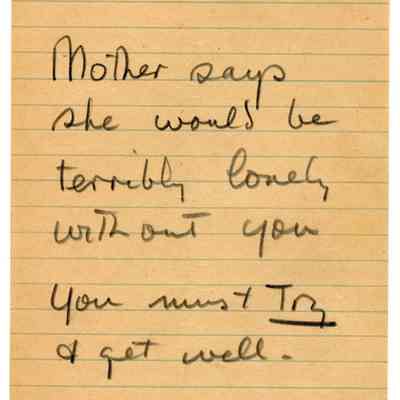 Mother says
she would be
terribly lonely
without you
You must Try
& get well.